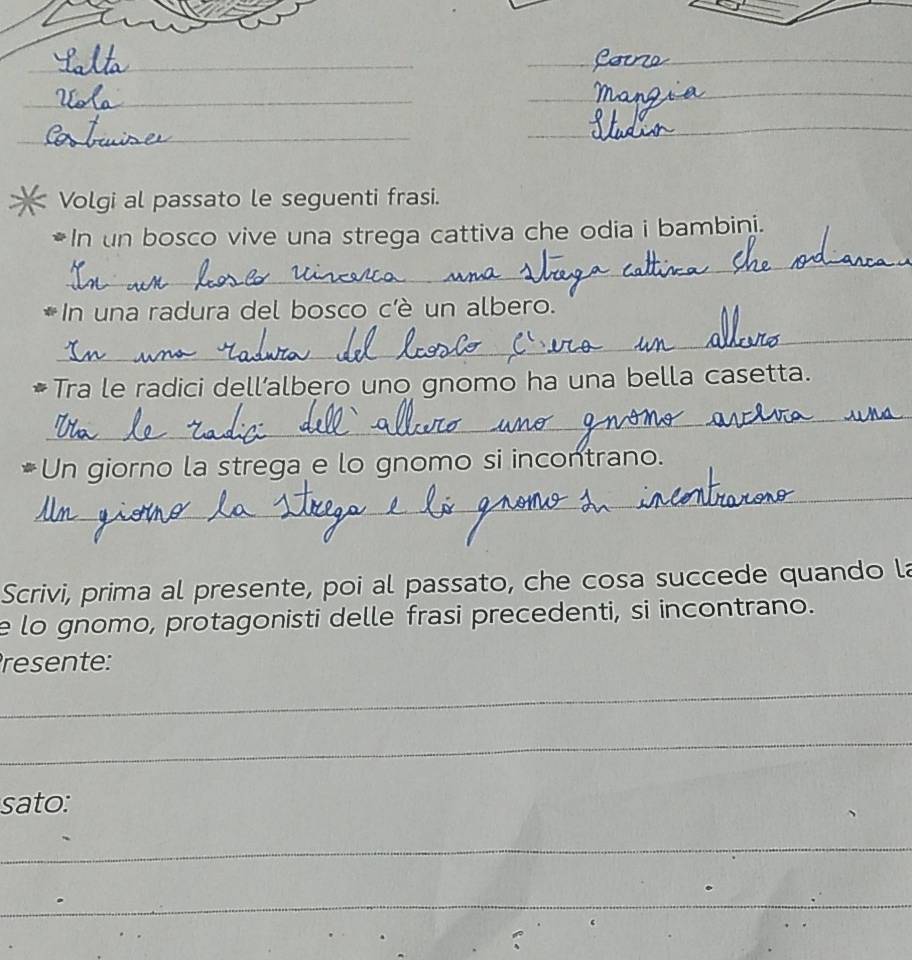 Salta Corre
Vola Mangia
Costruisce Studia
Volgi al passato le seguenti frasi.
In un bosco vive una strega cattiva che odia i bambini.
In un bosco una strega cattiva che
In una radura del bosco c'è un albero.
In una radura del bosco c'era un albero
Tra le radici dell'albero uno gnomo ha una bella casetta.
Tra le radici dell'albero uno gnomo una
Un giorno la strega e lo gnomo si incontrano.
Un giorno la strega e lo gnomo si incontrarono
Scrivi, prima al presente, poi al passato, che cosa succede quando la
e lo gnomo, protagonisti delle frasi precedenti, si incontrano.
resente:
sato: